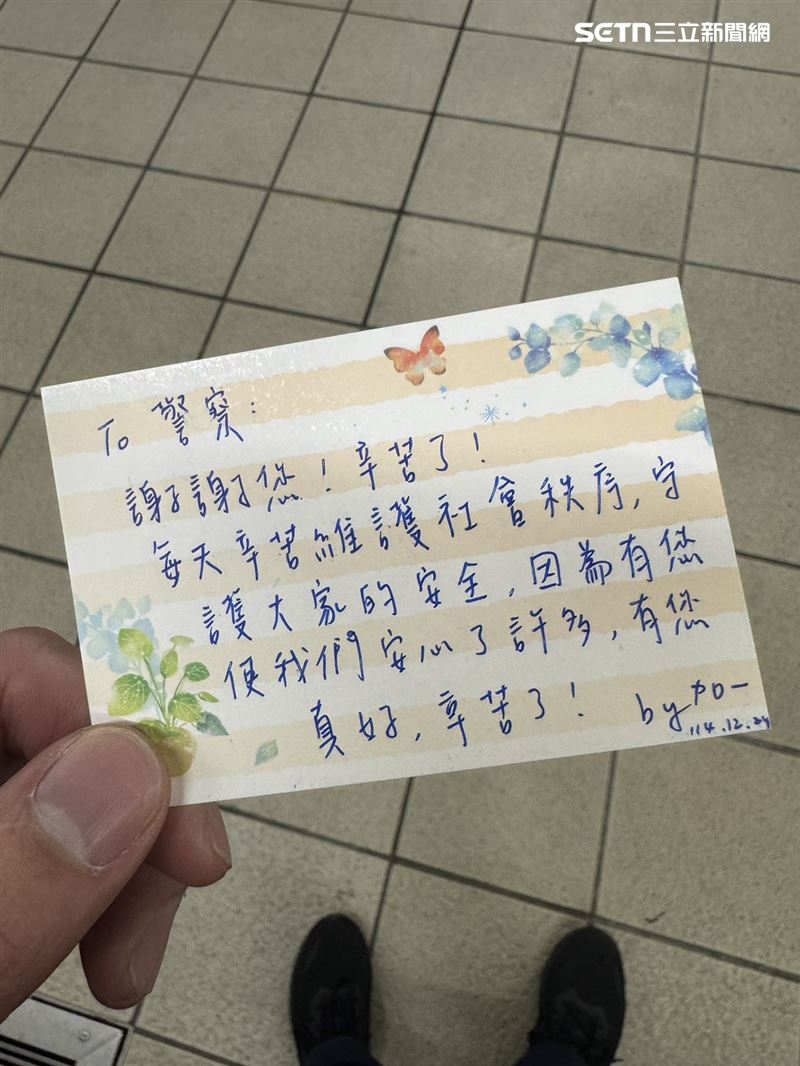 SETN三立新聞網
To 警察:
謝謝您!辛苦了!
每天辛苦維護社會秩序,守
護大家的安全,因為有您
使我們安心了許多,有您
真好,辛苦了! by
114.12.24